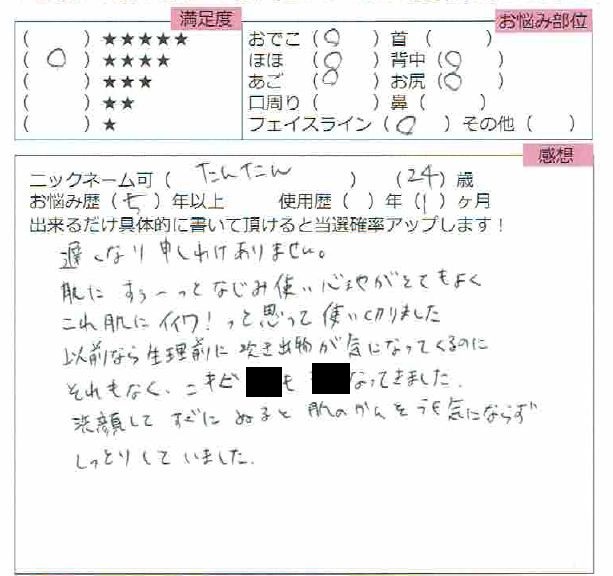 満足度
お悩み部位
( ) ★★★★★
( ○ ) ★★★★
( ) ★★★
( ) ★★
( ) ★
おでこ ( ○ ) 首 ( )
ほほ ( ○ ) 背中 ( ○ )
あご ( ○ ) お尻 ( ○ )
口周り ( ) 鼻 ( )
フェイスライン ( ○ ) その他 ( )
感想
ニックネーム可 ( たんたん ) ( 24 ) 歳
お悩み歴 ( 七 ) 年以上 使用歴 ( ) 年 ( 1 ) ヶ月
出来るだけ具体的に書いて頂けると当選確率アップします!
遅くなり申しわけありません。
肌に すぅ〜っと なじみ使い心地がとてもよく
これ肌にイイワ!って思って使い切りました
以前なら生理前に吹き出物が気になってくるのに
それもなく、ニキビ も なってきました.
洗顔して すぐに ぬると 肌のかんそうも気にならず
しっとりしていました.